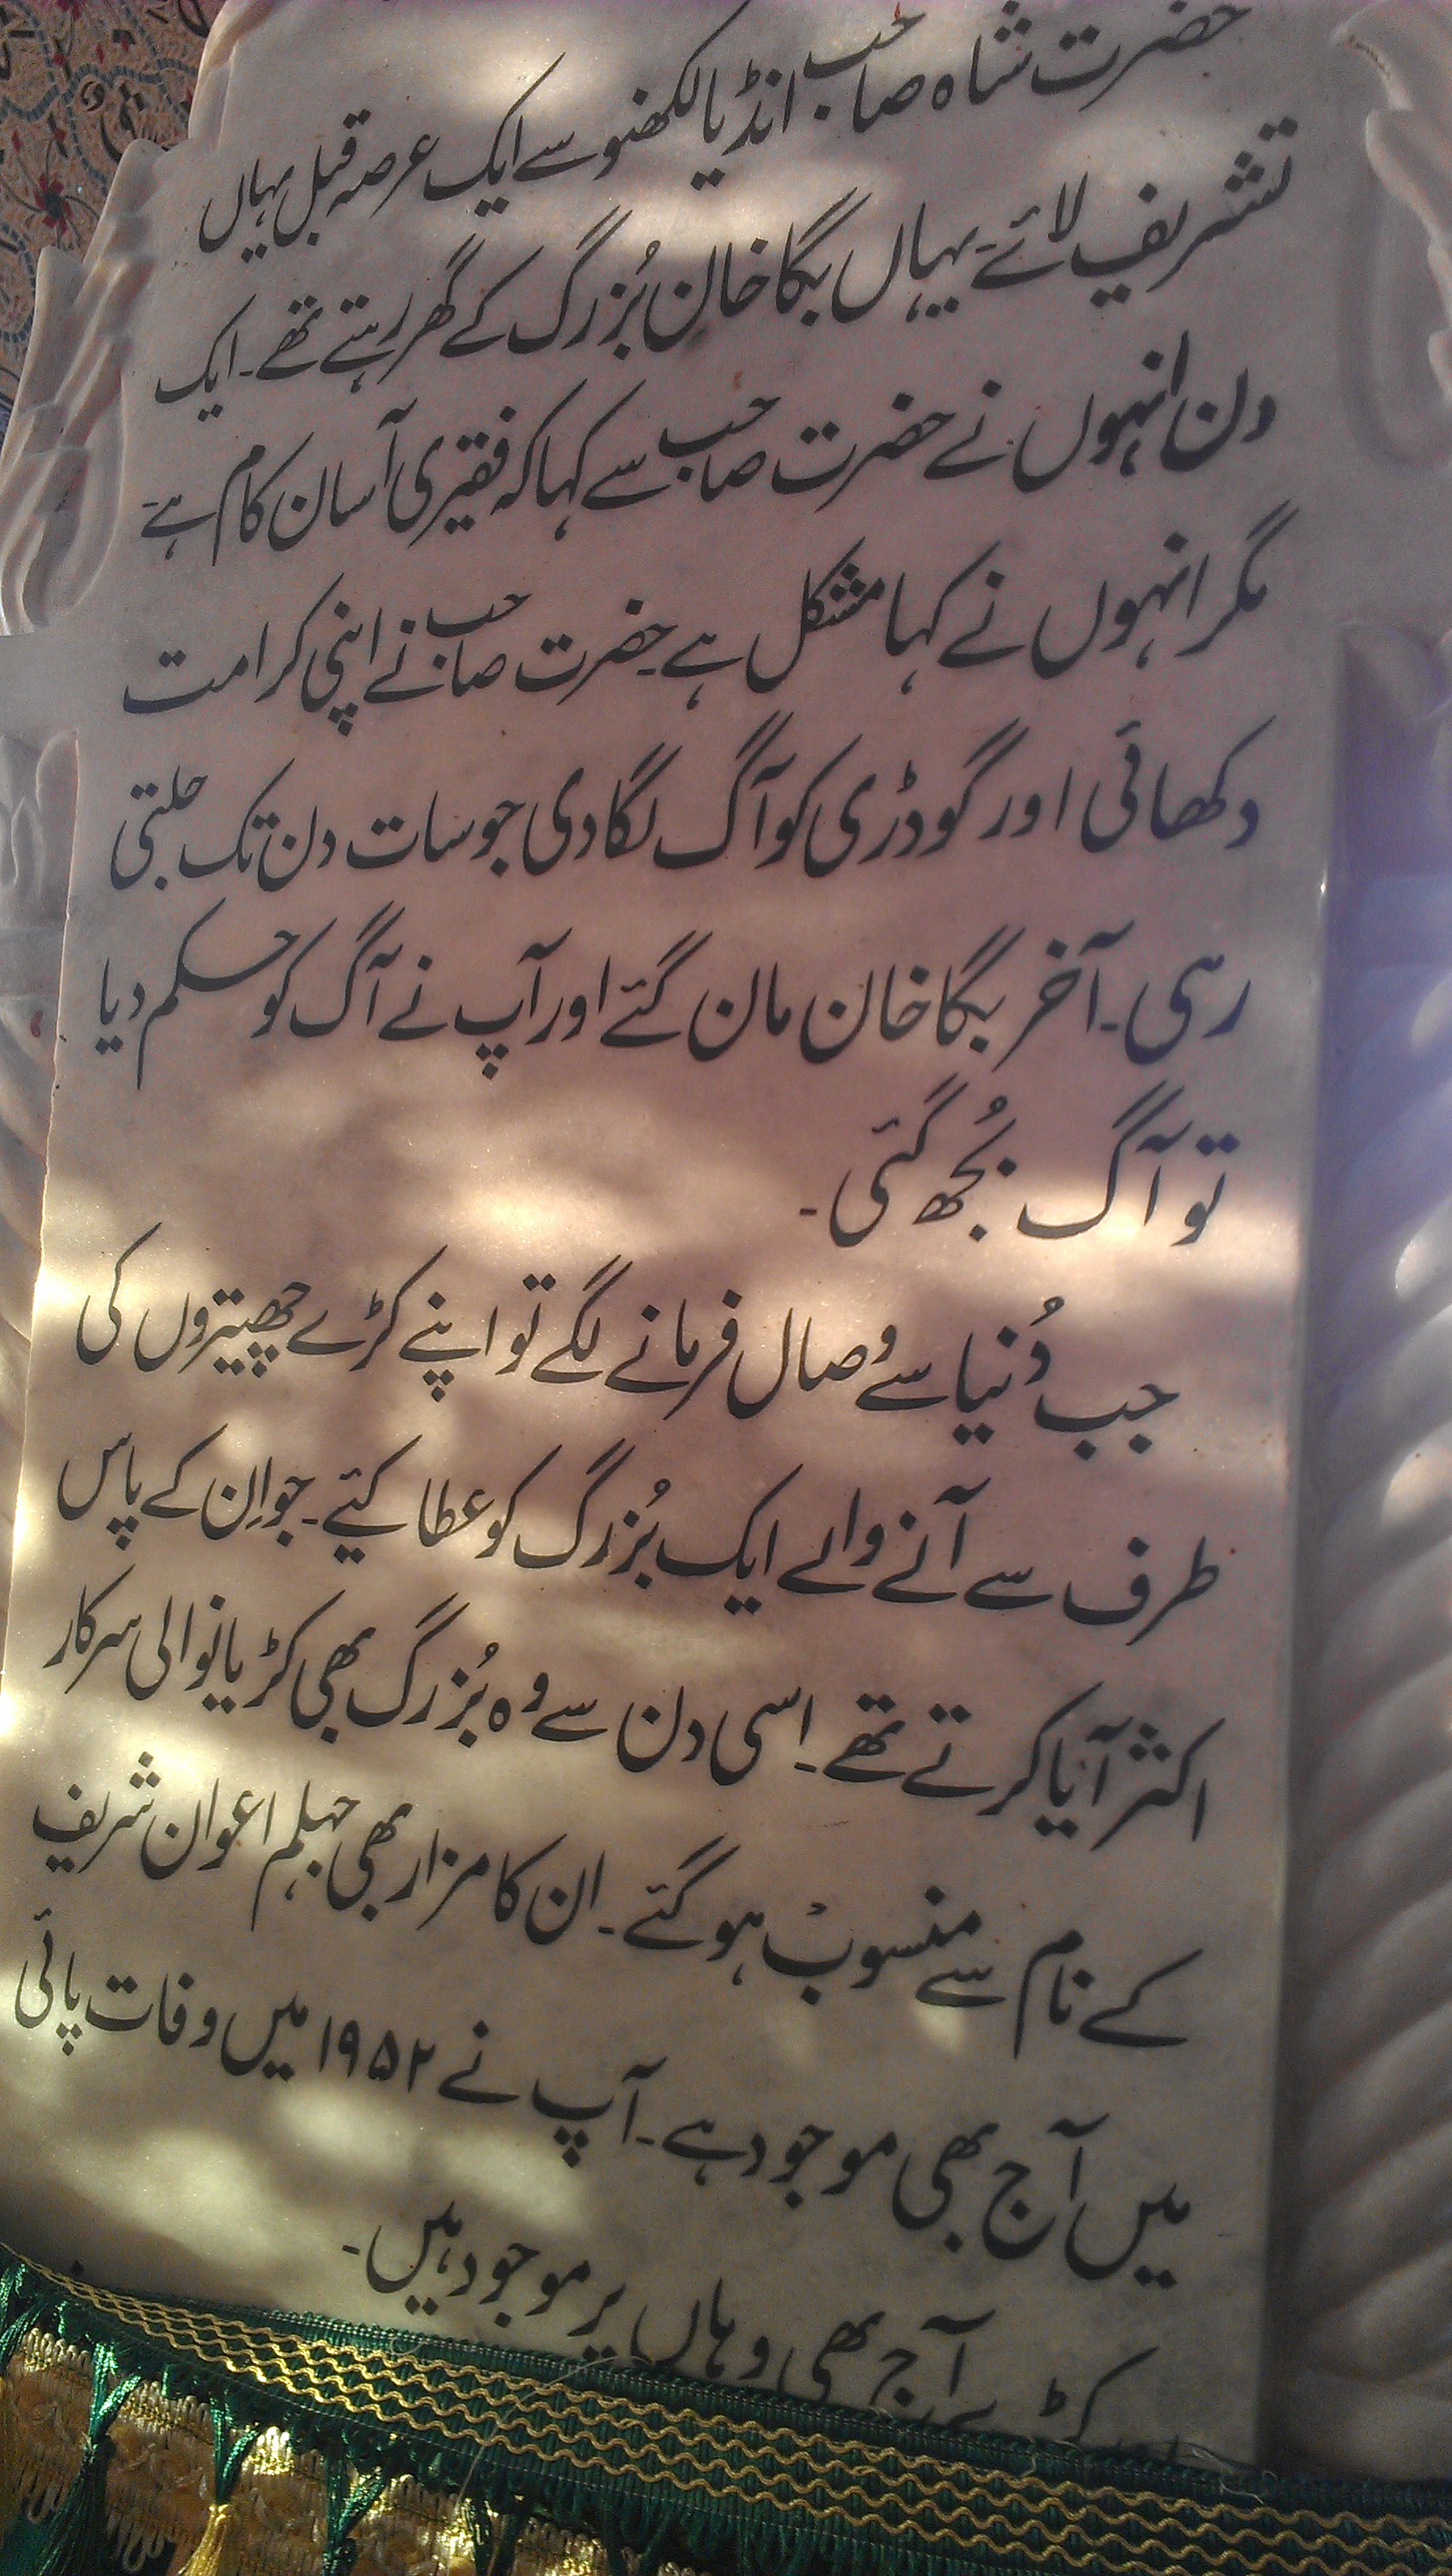 حضرت شاہ صاحب انڈیا لکھنو سے ایک عرصہ قبل یہاں
تشریف لائے۔ یہاں بگا خان بُزرگ کے گھر رہتے تھے۔ ایک
دن انہوں نے حضرت صاحب سے کہا کہ فقیری آسان کام ہے
مگر انہوں نے کہا مشکل ہے۔ حضرت صاحب نے اپنی کرامت
دکھائی اور گودڑی کو آگ لگا دی جو سات دن تک جلتی
رہی۔ آخر بگا خان مان گئے اور آپ نے آگ کو حکم دیا
تو آگ بُجھ گئی۔
جب دُنیا سے وصال فرمانے لگے تو اپنے کڑے چھپتروں کی
طرف سے آنے والے ایک بُزرگ کو عطا کیئے۔ جو اِن کے پاس
اکثر آیا کرتے تھے۔ اسی دن سے وہ بُزرگ بھی کڑیانوالی سرکار
کے نام سے منسوب ہو گئے۔ ان کا مزار بھی جہلم اعوان شریف
میں آج بھی موجود ہے۔ آپ نے ۱۹۵۲ میں وفات پائی
کڑے آج بھی وہاں پر موجود ہیں۔